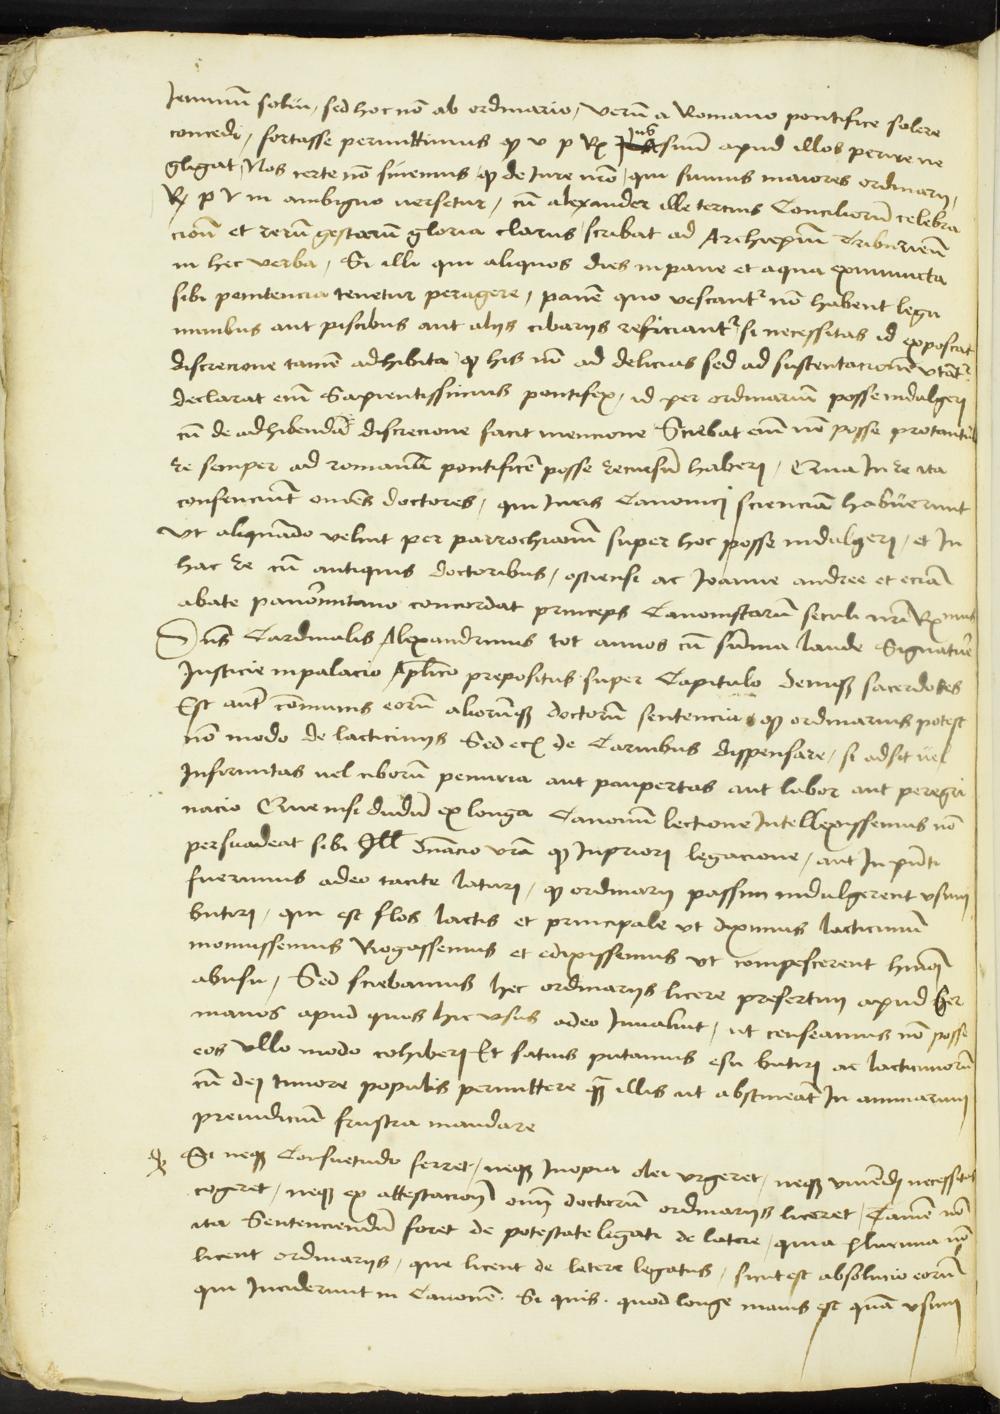 Ieiuniũ solui, sed hoc nõ ab ordinario, verũ a Romano pontifice solere
concedi, fortasse permittimus qꝫ v p Rx ius suũ apud illos perire ne
gligat, Nos certe nõ sinemus qꝫ de Iure nr̃o, qui sumus maiores ordinarij,
Rx p v in ambiguo versetur, cũ alexander ille tercius Conciliorũ celebra
cionũ et rerũ gestarũ gloria clarus scribat ad Archiep̃m Triburieñ
in hec verba, Si illi qui aliquos dies in pane et aqua ex iniuncta
sibi penitencia tenetur peragere, panẽ quo vescant᷑ nõ habent legu
minibus aut piscibus aut alijs cibarijs reficiant᷑ si necessitas id exposcat
discrecione tamẽ adhibita qꝫ his nõ ad delicias sed ad sustentacionẽ vtãt᷑
declarat em̃ Sapientissimus pontifex, id per ordinariũ posse indulgeri
cũ de adhibenda discrecione facit mencionẽ Sciebat em̃ nõ posse pro tantula
re semper ad romanũ pontificẽ posse recursũ haberi, Qua In re ita
consenciũt om̃es doctores, qui Iuris Canonici scienciã habuerunt
Vt aliquãdo velint per parrochianũ super hoc posse indulgeri, et In
hac re cũ antiquis doctoribus, ostiensi ac Ioanne andree et eciã
abate panormitano concordat princeps Canonistarũ seculi nr̃i Rx mus
Dñs Cardinalis Alexandrinus tot annos cũ summa laude Signature
Iusticie in palacio Apl̃ico prepositus super Capitulo deniqꝫ sacerdotes
Est aut̃ cõmunis eorũ aliorũqꝫ doctorũ sentencia qꝫ ordinarius potest
nõ modo de lacticinijs Sed eciã de Carnibus dispensare, si adsit vel
Infirmitas vel ciborũ penuria aut paupertas aut labor aut peregri
nacio Que nisi dudũ ex longa Canonũ lectione Intellexissemus nõ
persuadeat sibi Ill̃ dñacio vr̃a qꝫ In priori legacione, aut In pñti
fuerimus adeo tacite laturi, qꝫ ordinarij passim indulgerent vsum
butiri, qui est flos lactis et principale vt diximus lacticiniũ
monuissemus Rogassemus et edixissemus vt compescerent huiõi
abusũ, Sed sciebamus hec ordinarijs licere presertim apud Ger
manos apud quos hic vsus adeo Inualuit, vt censeamus nõ posse
eos vllo modo cohiberi Et satius putamus esũ butiri ac lacticiniorũ
cũ dei timore populis permittere qꝫ̃ illis vt abstineãt In animarum
preiudiciũ frustra mandare
Si neqꝫ Consuetudo ferret, neqꝫ Inopia olei vrgeret, neqꝫ viuendi necessitas
cogeret, neqꝫ ex attestacionẽ om̃ doctorũ ordinarijs liceret, Tamen nõ
ita Sentenciendũ foret de potestate legati de latere, quia plurima nõ
licent ordinarijs, que licent de latere legatis, sicut est absolucio eorũ
qui Inciderunt in Canonẽ. Si quis. quod longe maius est quã vsum